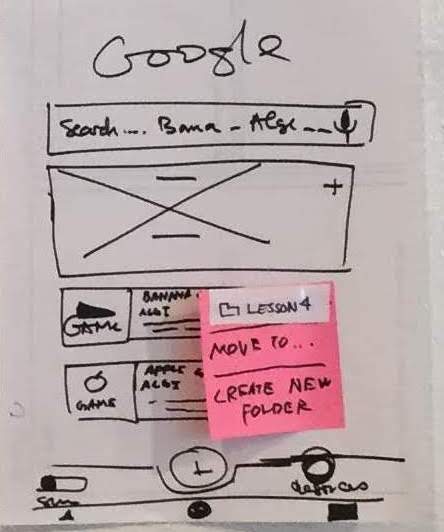 Google
Search.... Bana - Alge
GAME
BANANA
LESSON 4
MOVE TO...
CREATE NEW
FOLDER
APPLE
GAME